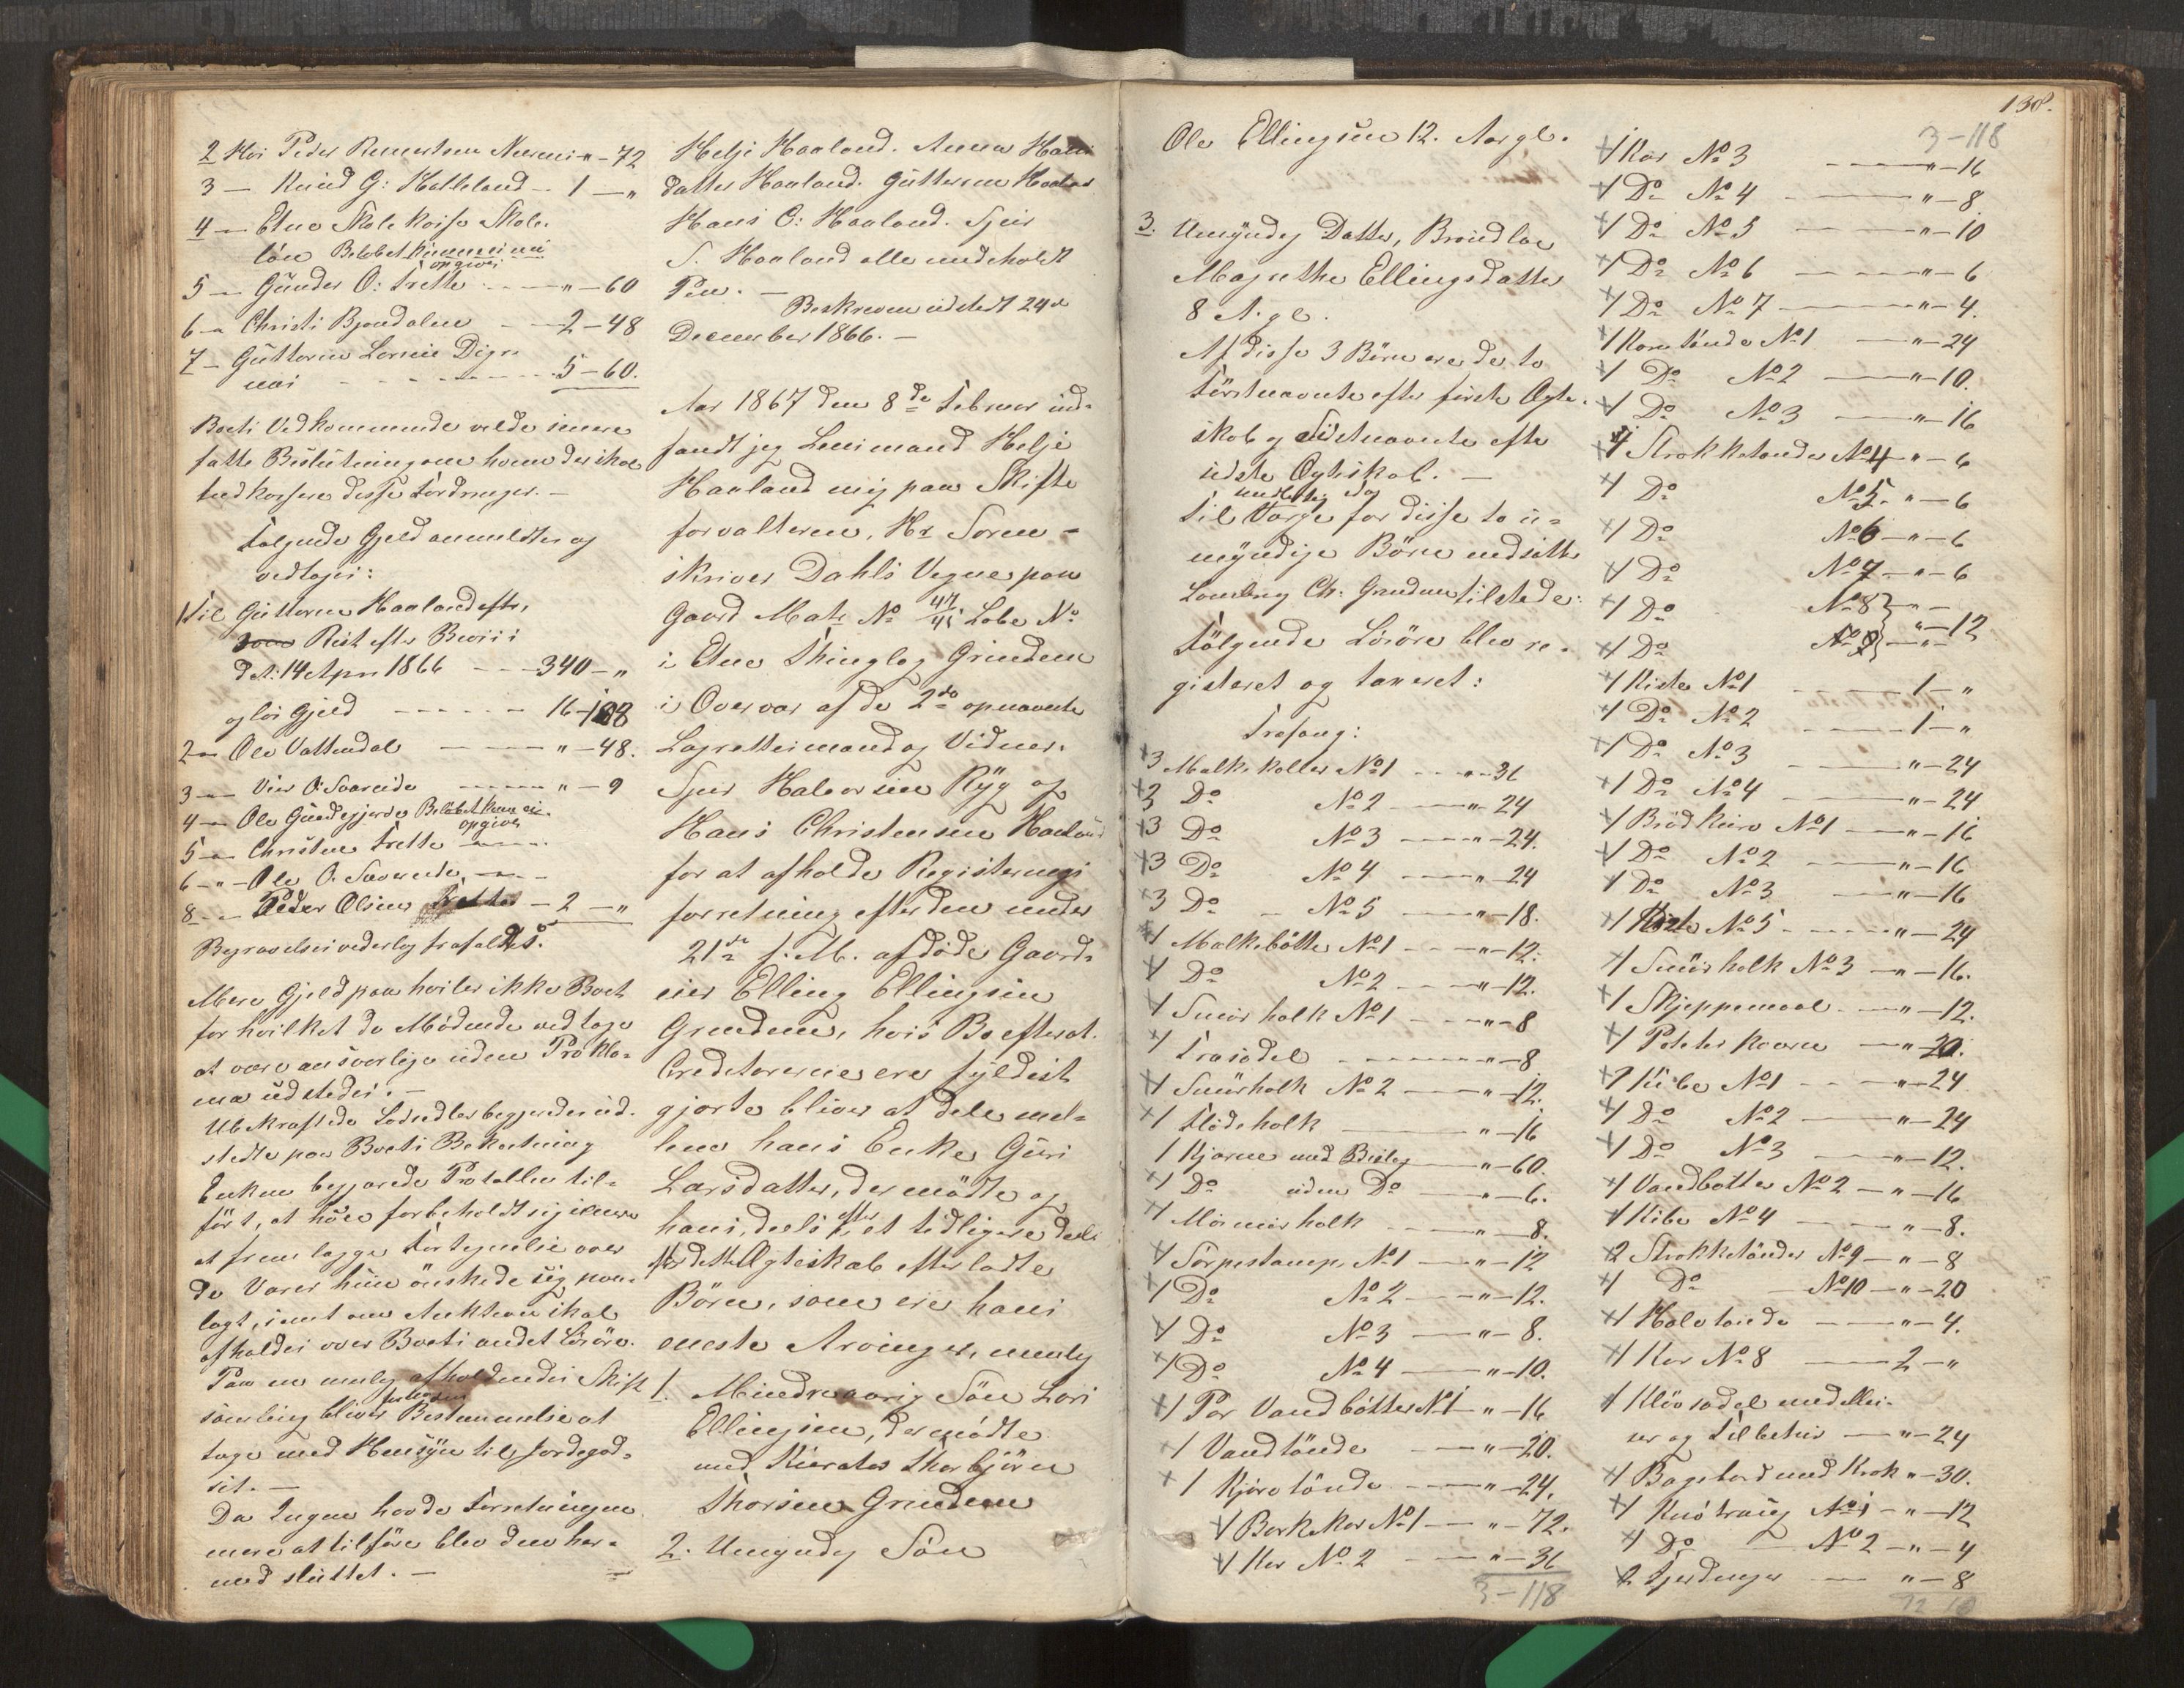 2 Hos Peder Remertsen " - 72
3 — Knud G: Halleland - 1 - "
4 — Etne Skolekasse Skole-
lön Belöbet kunne ei
opgives
5 — Gunder O: Frette - " - 60
6 — Christi Bjondalen - 2 - 48
7 - Guttorm Larsen
5 - 60.
Boets Vedkommende vilde senere
fatte Beslutning om hvem der skal
indkassere disse Fordringer. -
Fölgende Gjeld anmeldtes og
vedtoges:
1 Til Guttorm Haaland efter
Rest efter Beviis
dat: 14 Apr 1866 - 340 - "
og lös Gjeld - 16 - 108
2 — Ole Vattendal - " - 48.
3 — O. Saareide - " - 9
4 — Ole Belöbet kan ei
opgives
5 — Christen Frette
6 - " - Ole O. Saareide
8 — Peder Olsen Frette - 2 - "
Begravelsesvederlag frafaldtes.
Mere Gjeld paahviler ikke Boet
for hvilket de Mödende vedtoge
at være ansvarlige uden Prokla-
ma udstedes. -
Ubekræftede Lodsedler begjæredes ud-
stedte paa Boets Bekostning
Enken begjærede Protokollen til-
fört, at hun forbeholdt sig senere
at fremlægge Fortegnelse over
de Varer hun önskede sig paa-
lagt, samt om Auktion skal
afholdes over Boets andet Lösöre.
Paa en muligafholdendes Skifte
samling bliver Bestemmelse at
tage med Hensyn til Jordegod-
set. -
Da Ingen havde Forretningen
mere at tilföre blev den her-
med sluttet. -
Helje Haaland. Anna Hans
datter Haaland. Guttorm Haaland
Hans C: Haaland. Sjur
S. Haaland alle med iholdt
Pen. -
Beskreven udstedt 24de
December 1866. -
Aar 1867 den 8de Februar ind-
fandt jeg Lensmand Helje
Haaland mig paa Skifte
forvalteren, Hr Soren-
skriver Dahls Vegne paa
Gaard Matr No Löbe No
i Etne Thinglag Grindem
i Overvær af de 2de opnævnte
Lagrettesmænd og Vidner.
Sjur Halvorsen Ryg og
Hans Christensen Haaland
for at afholde Registerings
forretning efter den under
21de f. M. afdöde Gaard-
eier Elling Ellingsen
Grindem, hvis Bo efterat
Creditorerne ere fyldest
gjorte bliver at dele mel-
lem hans Enke Guri
Larsdatter, der mödte og
hans, deels efter et tidligere deels
dette Ægteskab efterladte
Börn, som ere hans
eneste Arvinger, nemlig
1. Mindreaarig Sön Lars
Ellingsen, der mödte
med Kurator Thorbjörn
Thorsen Grindem
2. Umyndig Sön
138.
Ole Ellingsen 12. Aar gl.
3. Umyndig Datter, Brønla
Magnthe Ellingsdatter
8 A. gl.
Af disse 3 Börn ere de to
Förstnævnte efter förste Ægte-
skab og Sidstnævnte efter
sidste Ægteskab. -
Til Værge for disse to u-
myndige Börn indsatte
Ch: Grindem tilstede.
Fölgende Lösöre blev re-
gisteret og taxeret:
Træfang:
3 Melkekoller No 1 - " - 36
3 Do No 2 - " - 24
3 Do No 3 - " - 24.
3 Do No 4 - " - 24
3 Do No 5 - " - 18.
1 Melkebötte No 1 - " - 12.
1 Do No 2 - " - 12.
1 Smörholk No 1 - " - 8
1 Træsadel - " - 8
1 Smörholk No 2 - " - 12.
1 Flödeholk - " - 16
1 Kjærne med Beslag - " - 60.
1 Do uden Do - " - 6.
1 holk - " - 8.
1 Sörpestamp No 1 - " - 12
1 Do No 2 - " - 12.
1 Do No 3 - " - 8.
1 Do No 4 - " - 10.
1 Par Vandbötter No 1 - " - 16
1 Vandtönde - " - 20.
1 Kjöretönde - " - 24.
1 Barkekar No 1 - " - 72.
1 Kar No 2 - " - 36
3 - 118
3 - 118
1 Kar No 3 - " - 16
1 Do No 4 - " - 8
1 Do No 5 - " - 10
1 Do No 6 - " - 6
1 Do No 7 - " - 4.
1 Korntönde No 1 - " - 24
1 Do No 2 - " - 10.
1 Do No 3 - " - 16
1 Strokketönde No 4 - " - 6
1 Do No 5 - " - 6
1 Do No 6 - " - 6
1 Do No 7 - " - 6
1 Do No 8 } " -
1 Do No 9 } " - 12
1 Kiste No 1 - 1 - "
1 Do No 2 - 1 - "
1 Do No 3 - " - 24
1 Do No 4 - " - 24
1 Brödkurv No 1 - " - 16
1 Do No 2 - " - 16
1 Do No 3 - " - 16
1 Kiste No 5 - " - 24
1 Smörholk No 3 - " - 16.
1 Skjeppemaal - " - 12.
1 Potetes - " - 20.
1 Kibe No 1 - " - 24
1 Do No 2 - " - 24
1 Do No 3 - " - 12.
1 Vandbötter No 2 - " - 16
1 Kibe No 4 - " - 8.
2 Strokketönder No 9 - " - 8
1 Do No 10 - " - 20
1 Halvtönde - " - 4.
1 Kar No 8 - 2 - "
1 Klövsadel med Mei-
ser og Tilbehör - " - 24
1 Bagebord med Krak " - 30.
1 Knótraug No 1 - " - 12
1 Do No 2 - " - 4
2 Fjerdinger - " - 8